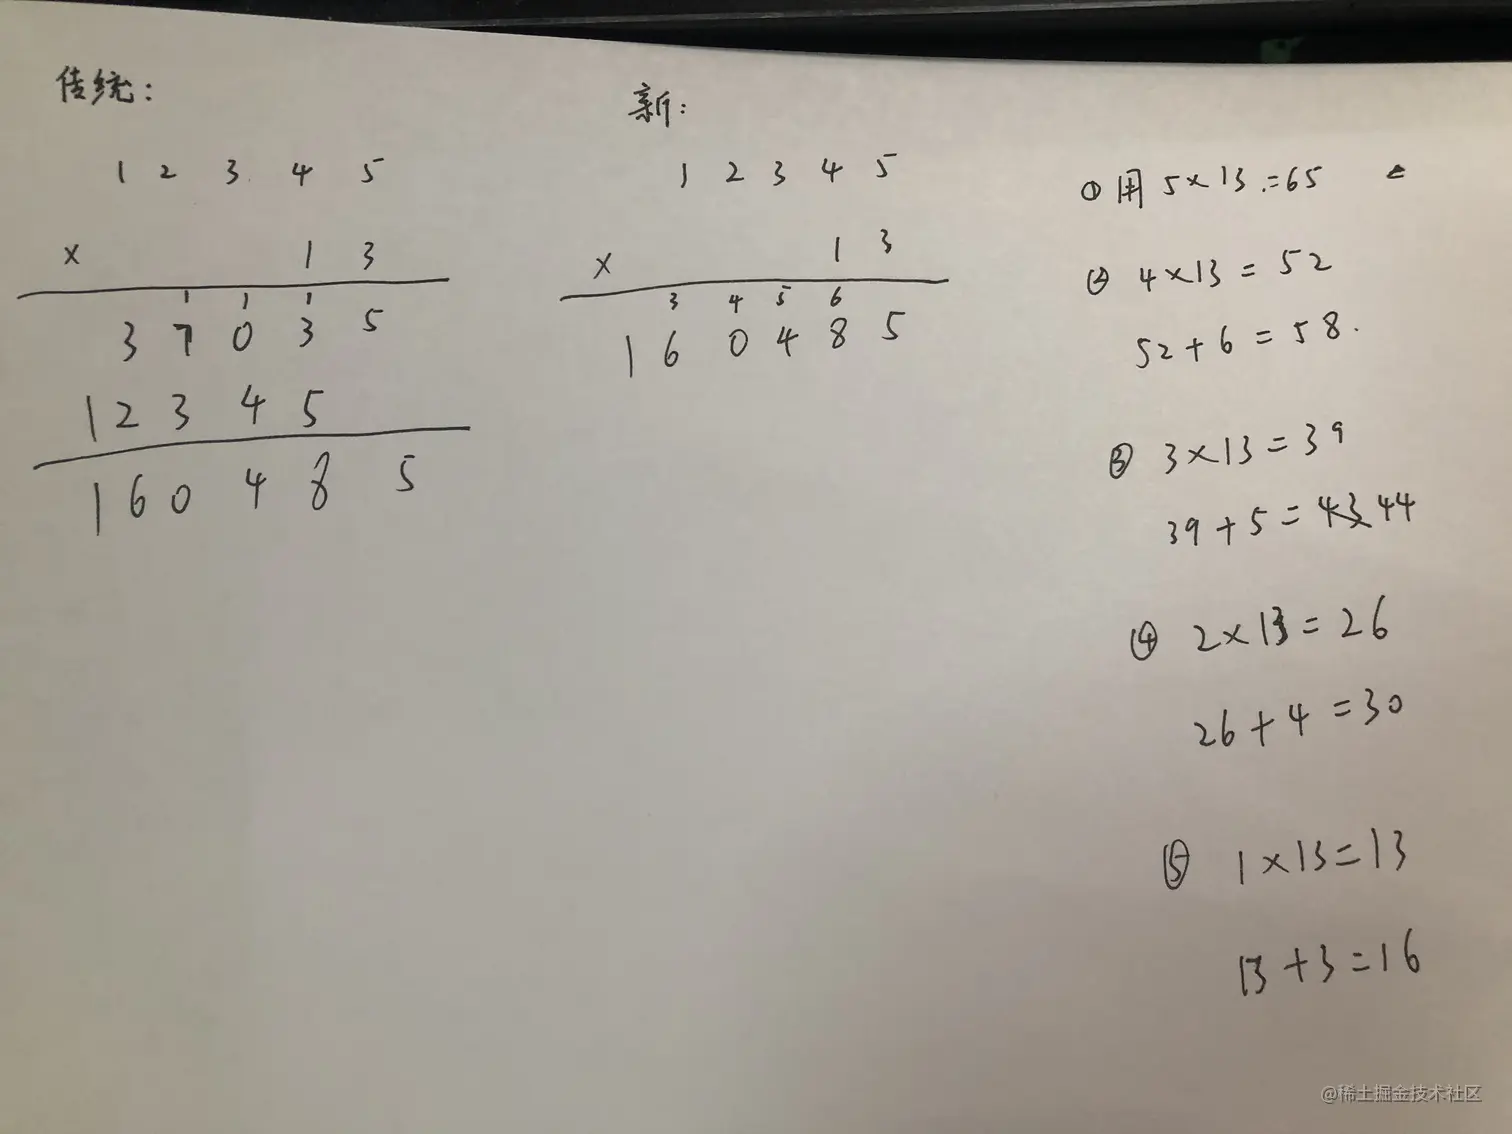 传统：
1 2 3 4 5
× 1 3
1 1 1
3 7 0 3 5
1 2 3 4 5
1 6 0 4 8 5
新：
1 2 3 4 5
× 1 3
3 4 5 6
1 6 0 4 8 5
① 用 5×13.=65
② 4×13=52
52+6=58.
③ 3×13=39
39+5=43 44
④ 2×13=26
26+4=30
⑤ 1×13=13
13+3=16
@稀土掘金技术社区